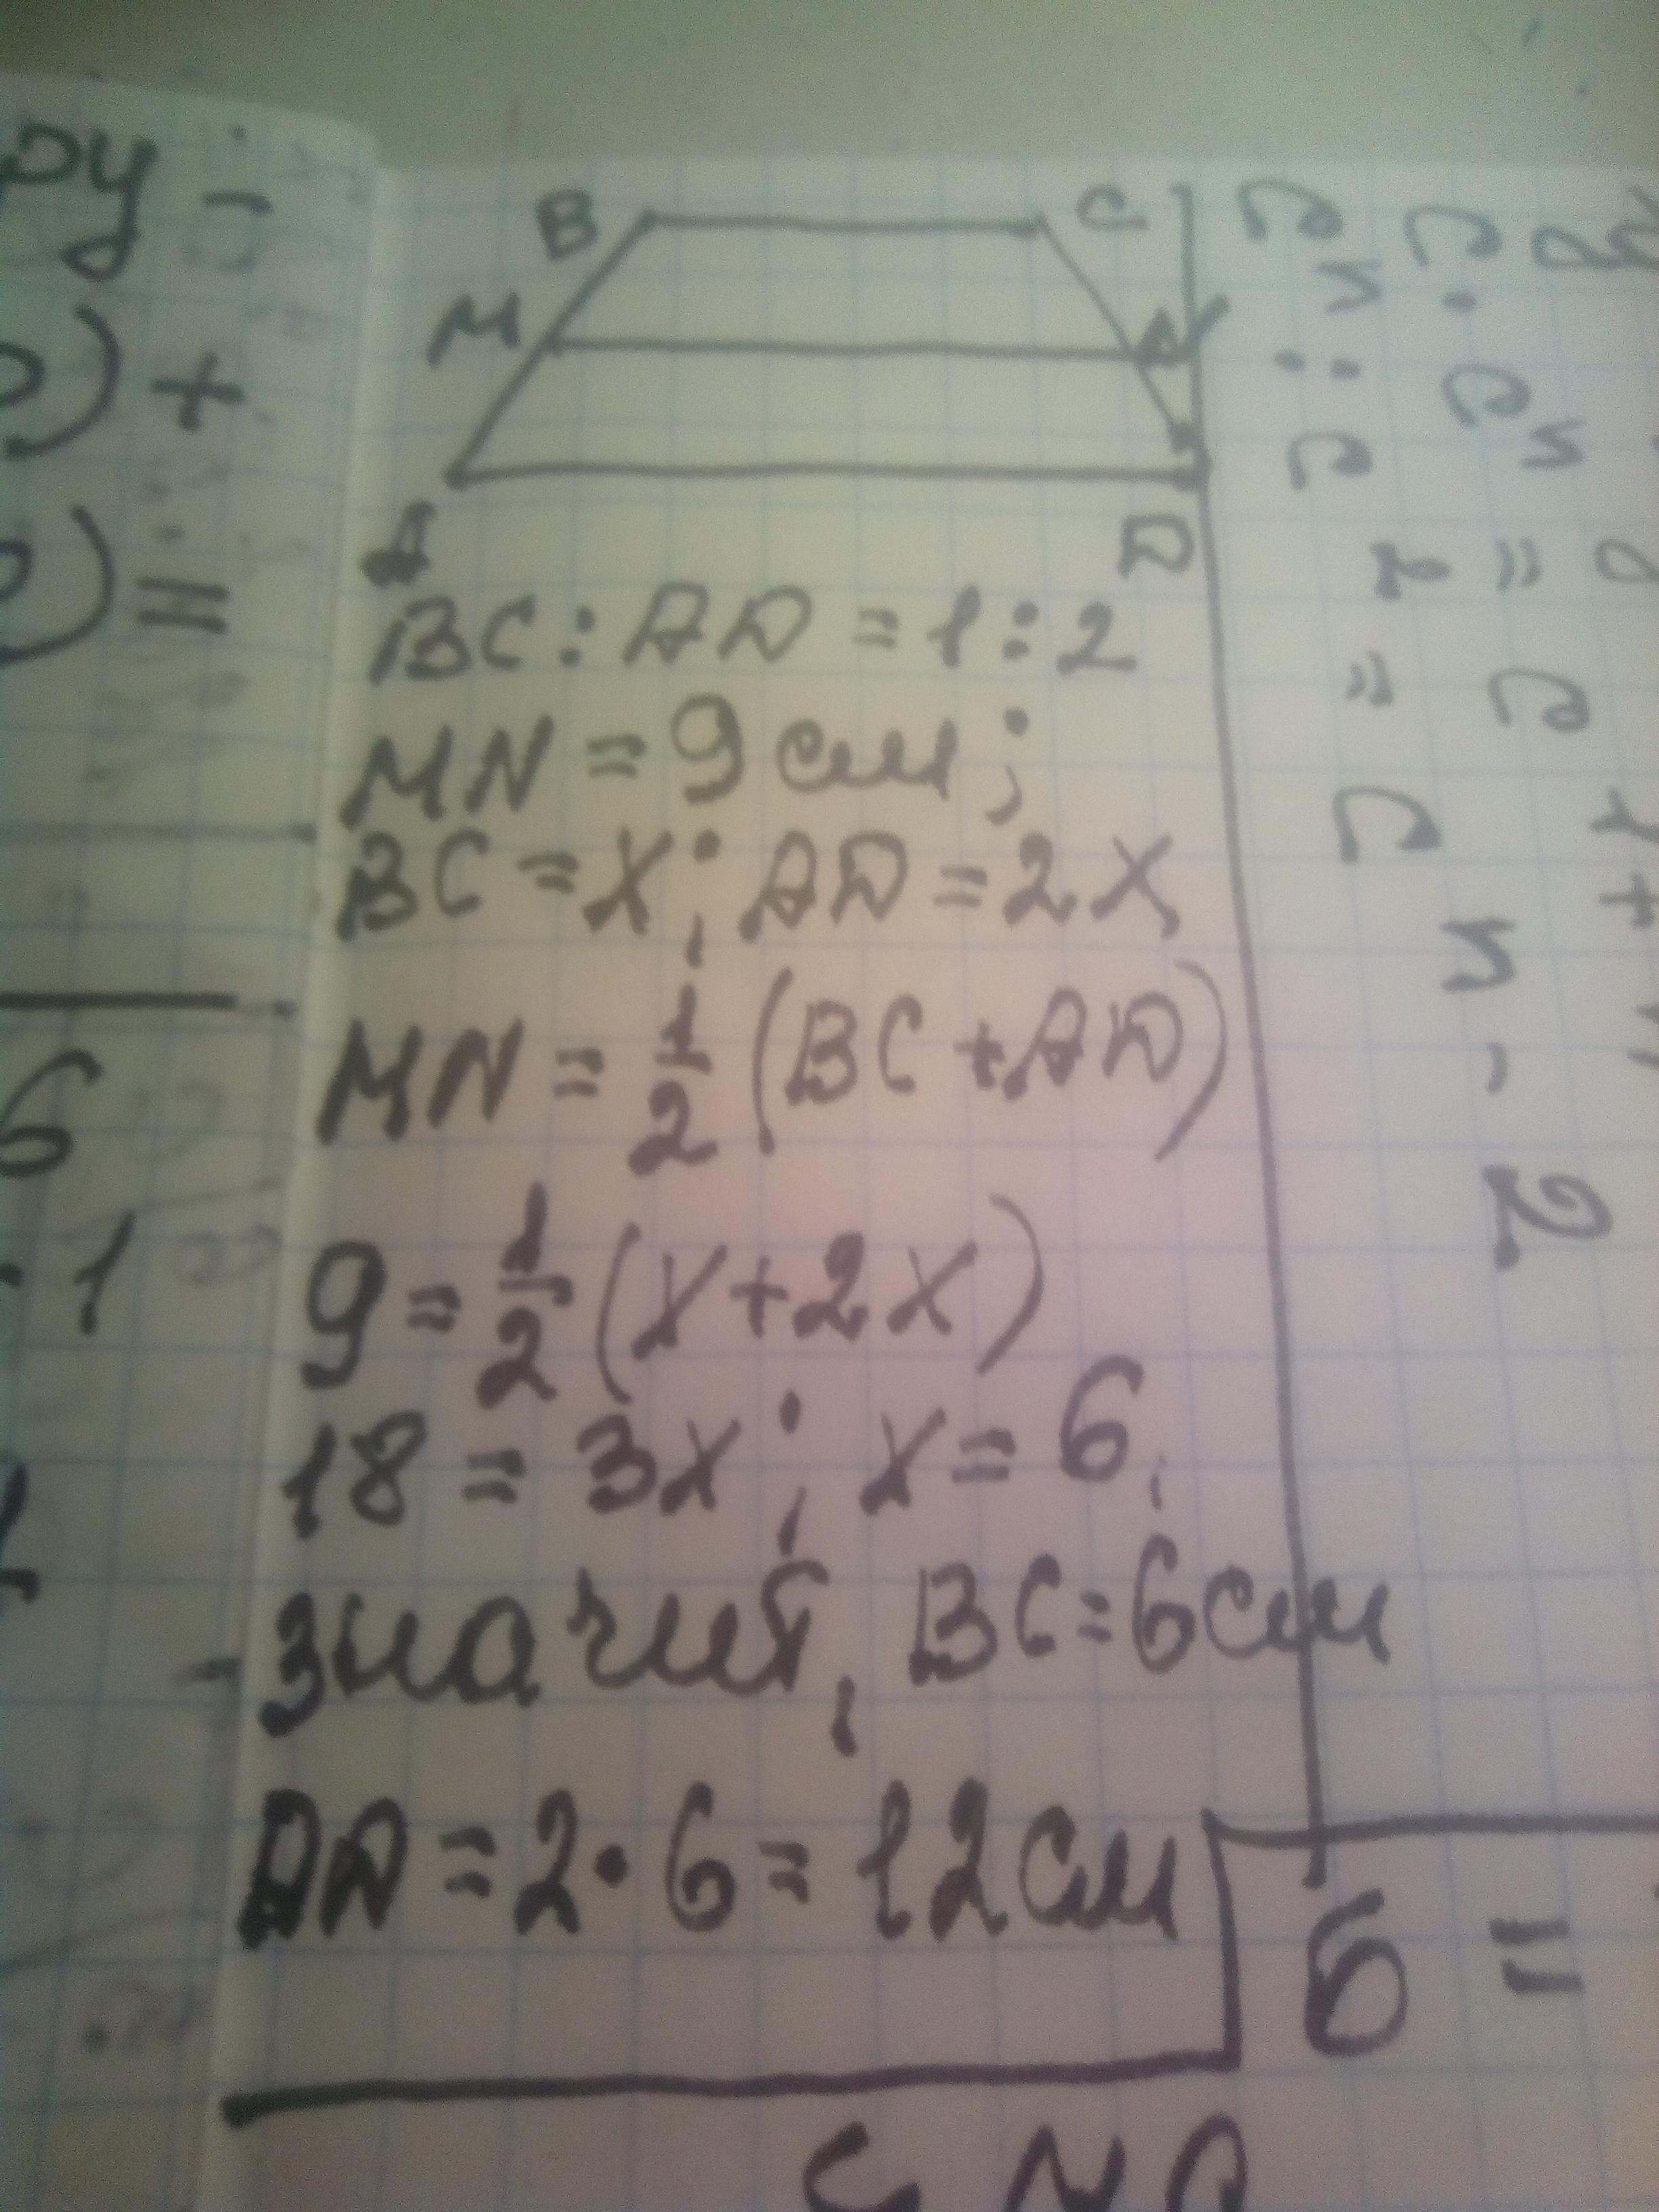 B C
M N
A D
BC : AD = 1 : 2
MN = 9 см ;
BC = x ; AD = 2x
MN = 1/2 (BC + AD)
9 = 1/2 (x + 2x)
18 = 3x ; x = 6 ,
значит, BC = 6 см
AD = 2 · 6 = 12 см
ру -
) +
) =
6
- 1
6 =